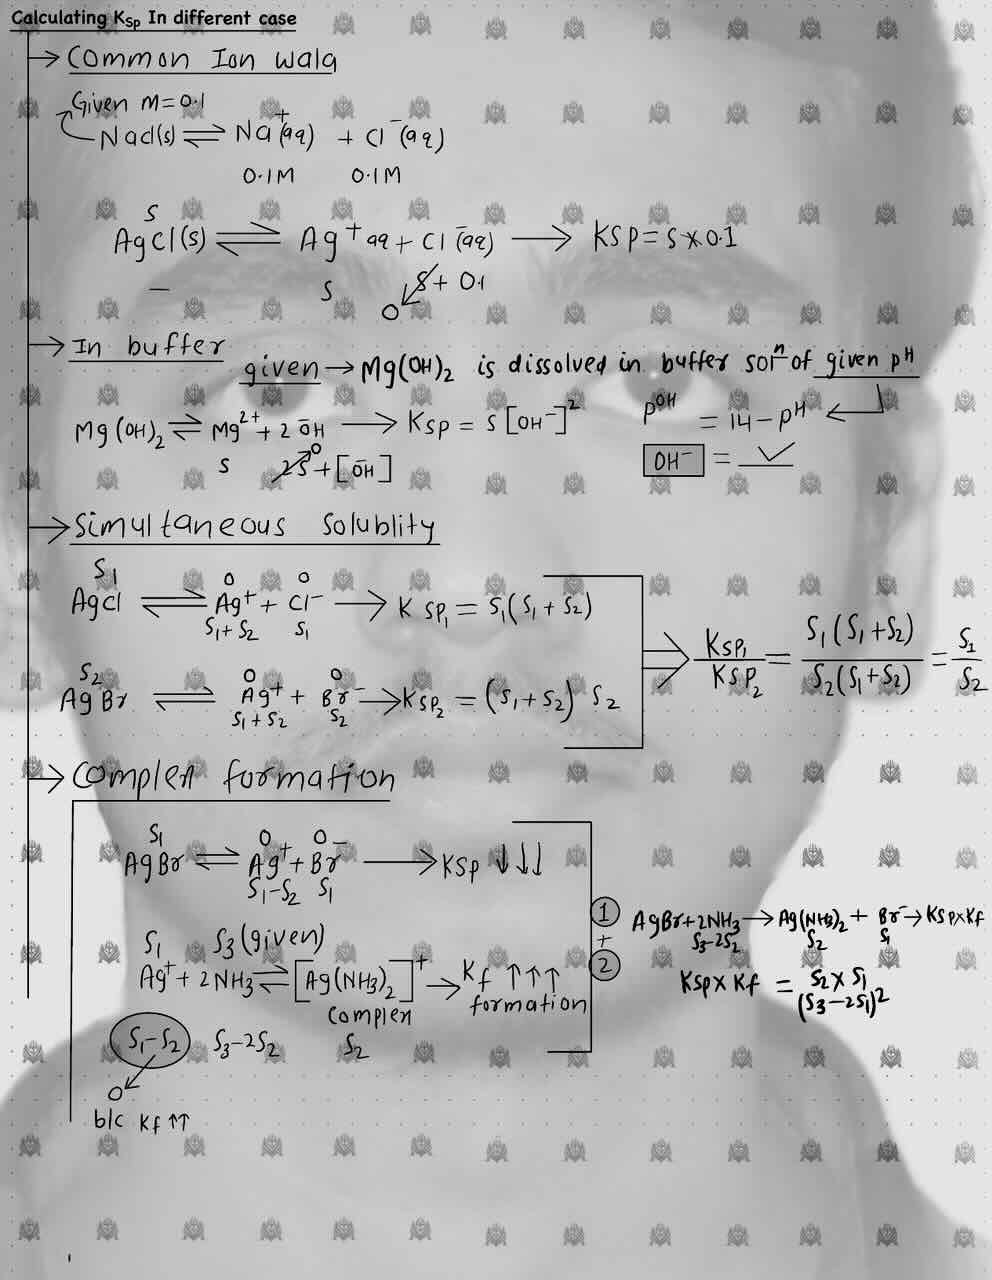 Calculating KSp In different case
→ Common Ion wala
Given m=0.1
Nacl(s) ⇌ Na⁺(aq) + Cl⁻(aq)
0.1M 0.1M
S
AgCl(s) ⇌ Ag⁺aq + Cl⁻(aq) → KSP = S×0.1
— S S+0.1
0
→ In buffer
given → Mg(OH)₂ is dissolved in buffer solⁿ of given pH
Mg(OH)₂ ⇌ Mg²⁺ + 2 ŌH → KSP = S[OH⁻]²
S 2S + [ŌH]
0
pOH = 14 - pH
OH⁻ = ✓
→ Simultaneous Solublity
S₁ 0 0
AgCl ⇌ Ag⁺ + Cl⁻ → KSP₁ = S₁(S₁+S₂)
S₁+S₂ S₁
S₂ 0 0
AgBr ⇌ Ag⁺ + Br⁻ → KSP₂ = (S₁+S₂) S₂
S₁+S₂ S₂
⇒ KSP₁/KSP₂ = S₁(S₁+S₂)/S₂(S₁+S₂) = S₁/S₂
→ Complex formation
S₁ 0 0
AgBr ⇌ Ag⁺ + Br⁻ → KSP ↓↓↓
S₁-S₂ S₁
S₁ S₃(given)
Ag⁺ + 2NH₃ ⇌ [Ag(NH₃)₂]⁺ → Kf ↑↑↑
complex formation
S₁-S₂ S₃-2S₂ S₂
0
b/c Kf ↑↑
① + ②
AgBr+2NH₃ → Ag(NH₃)₂ + Br⁻ → KSP×Kf
S₃-2S₂ S₂ S₁
KSP×Kf = S₂×S₁/(S₃-2S₁)²